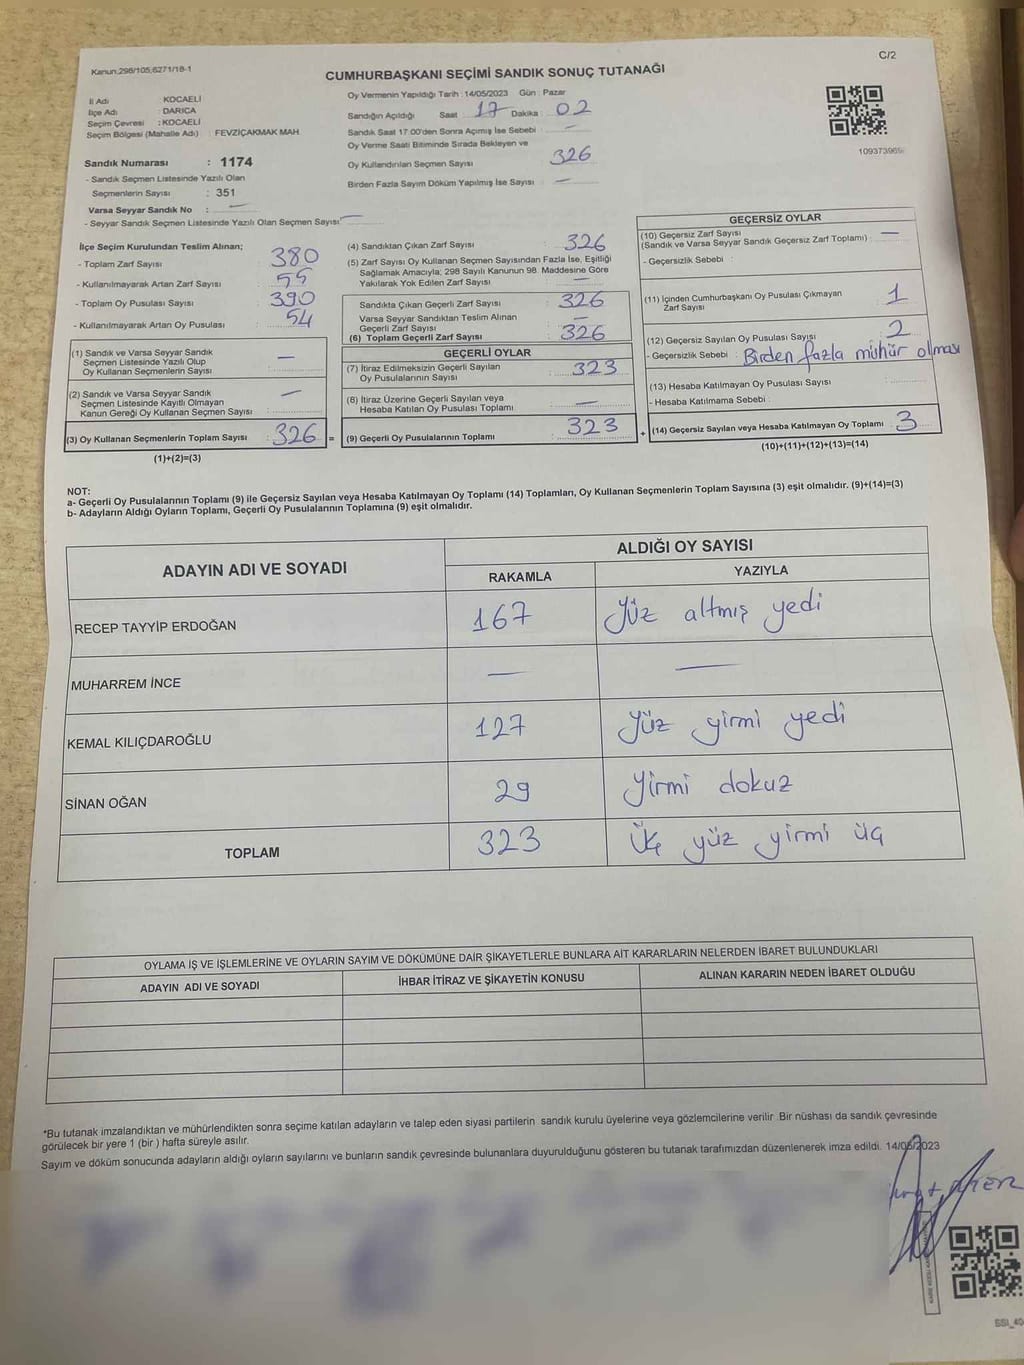 Kanun.298/105;6271/18-1
C/2
CUMHURBAŞKANI SEÇİMİ SANDIK SONUÇ TUTANAĞI
İl Adı KOCAELİ
İlçe Adı : DARICA
Seçim Çevresi : KOCAELİ
Seçim Bölgesi (Mahalle Adı) : FEVZİÇAKMAK MAH.
Sandık Numarası : 1174
- Sandık Seçmen Listesinde Yazılı Olan
Seçmenlerin Sayısı : 351
Varsa Seyyar Sandık No : —
- Seyyar Sandık Seçmen Listesinde Yazılı Olan Seçmen Sayısı : —
Oy Vermenin Yapıldığı Tarih : 14/05/2023 Gün : Pazar
Sandığın Açıldığı Saat : 17 Dakika : 02
Sandık Saat 17.00'den Sonra Açımış İse Sebebi : —
Oy Verme Saati Bitiminde Sırada Bekleyen ve
Oy Kullandırılan Seçmen Sayısı : 326
Birden Fazla Sayım Döküm Yapılmış İse Sayısı : —
109373969
İlçe Seçim Kurulundan Teslim Alınan;
- Toplam Zarf Sayısı : 380
- Kullanılmayarak Artan Zarf Sayısı : 55
- Toplam Oy Pusulası Sayısı : 390
- Kullanılmayarak Artan Oy Pusulası : 54
(1) Sandık ve Varsa Seyyar Sandık
Seçmen Listesinde Yazılı Olup
Oy Kullanan Seçmenlerin Sayısı : —
(2) Sandık ve Varsa Seyyar Sandık
Seçmen Listesinde Kayıtlı Olmayan
Kanun Gereği Oy Kullanan Seçmen Sayısı : —
(3) Oy Kullanan Seçmenlerin Toplam Sayısı : 326 =
(1)+(2)=(3)
(4) Sandıktan Çıkan Zarf Sayısı : 326
(5) Zarf Sayısı Oy Kullanan Seçmen Sayısından Fazla İse, Eşitliği
Sağlamak Amacıyla; 298 Sayılı Kanunun 98. Maddesine Göre
Yakılarak Yok Edilen Zarf Sayısı : —
Sandıkta Çıkan Geçerli Zarf Sayısı : 326
Varsa Seyyar Sandıktan Teslim Alınan
Geçerli Zarf Sayısı : —
(6) Toplam Geçerli Zarf Sayısı : 326
GEÇERLİ OYLAR
(7) İtiraz Edilmeksizin Geçerli Sayılan
Oy Pusulalarının Sayısı : 323
(8) İtiraz Üzerine Geçerli Sayılan veya
Hesaba Katılan Oy Pusulası Toplamı : —
(9) Geçerli Oy Pusulalarının Toplamı : 323 +
GEÇERSİZ OYLAR
(10) Geçersiz Zarf Sayısı
(Sandık ve Varsa Seyyar Sandık Geçersiz Zarf Toplamı) : —
- Geçersizlik Sebebi :
(11) İçinden Cumhurbaşkanı Oy Pusulası Çıkmayan
Zarf Sayısı : 1
(12) Geçersiz Sayılan Oy Pusulası Sayısı : 2
- Geçersizlik Sebebi : Birden fazla mühür olması
(13) Hesaba Katılmayan Oy Pusulası Sayısı :
- Hesaba Katılmama Sebebi :
(14) Geçersiz Sayılan veya Hesaba Katılmayan Oy Toplamı : 3
(10)+(11)+(12)+(13)=(14)
NOT:
a- Geçerli Oy Pusulalarının Toplamı (9) ile Geçersiz Sayılan veya Hesaba Katılmayan Oy Toplamı (14) Toplamları, Oy Kullanan Seçmenlerin Toplam Sayısına (3) eşit olmalıdır. (9)+(14)=(3)
b- Adayların Aldığı Oyların Toplamı, Geçerli Oy Pusulalarının Toplamına (9) eşit olmalıdır.
ADAYIN ADI VE SOYADI
ALDIĞI OY SAYISI
RAKAMLA YAZIYLA
RECEP TAYYİP ERDOĞAN 167 Yüz altmış yedi
MUHARREM İNCE — —
KEMAL KILIÇDAROĞLU 127 Yüz yirmi yedi
SİNAN OĞAN 29 Yirmi dokuz
TOPLAM 323 Üç yüz yirmi üç
OYLAMA İŞ VE İŞLEMLERİNE VE OYLARIN SAYIM VE DÖKÜMÜNE DAİR ŞİKAYETLERLE BUNLARA AİT KARARLARIN NELERDEN İBARET BULUNDUKLARI
ADAYIN ADI VE SOYADI İHBAR İTİRAZ VE ŞİKAYETİN KONUSU ALINAN KARARIN NEDEN İBARET OLDUĞU
*Bu tutanak imzalandıktan ve mühürlendikten sonra seçime katılan adayların ve talep eden siyasi partilerin sandık kurulu üyelerine veya gözlemcilerine verilir. Bir nüshası da sandık çevresinde
görülecek bir yere 1 (bir) hafta süreyle asılır.
Sayım ve döküm sonucunda adayların aldığı oyların sayılarını ve bunların sandık çevresinde bulunanlara duyurulduğunu gösteren bu tutanak tarafımızdan düzenlenerek imza edildi. 14/05/2023
SSI_40